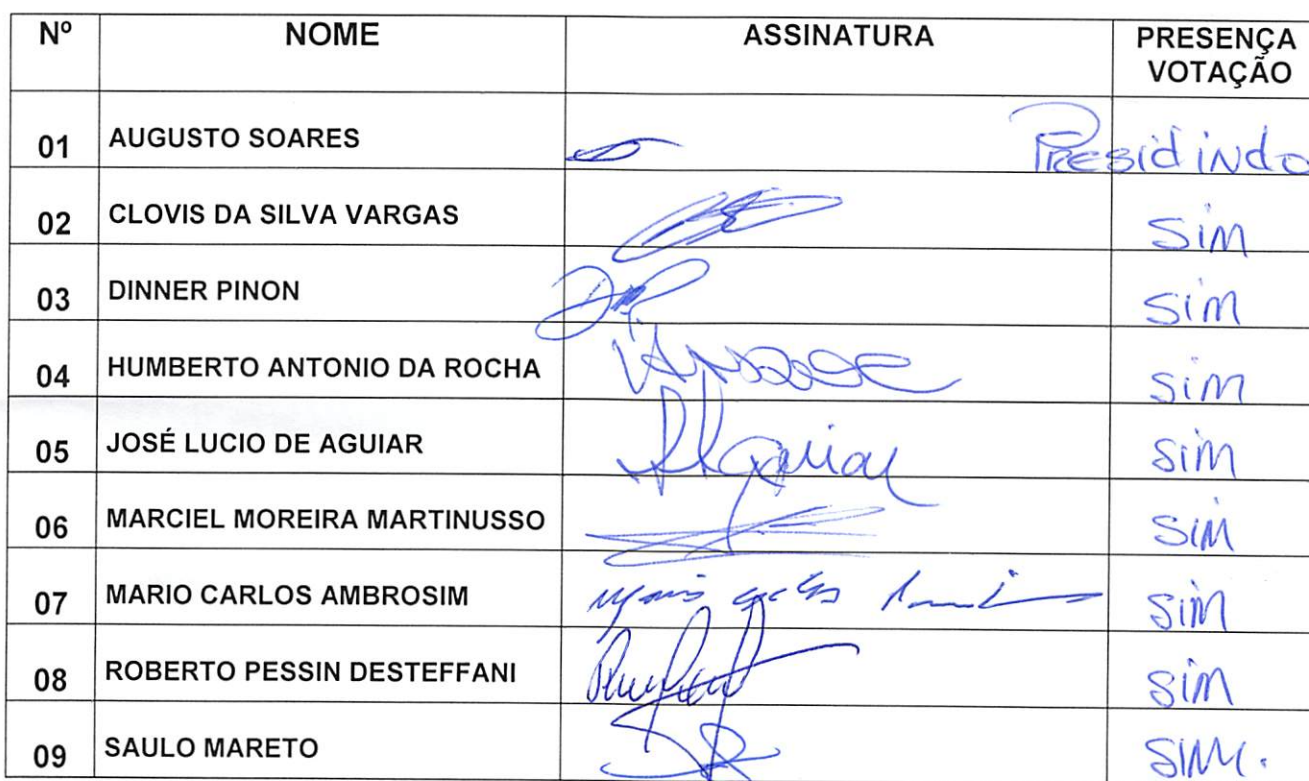 Nº NOME ASSINATURA PRESENÇA
VOTAÇÃO
01 AUGUSTO SOARES Presidindo
02 CLOVIS DA SILVA VARGAS Sim
03 DINNER PINON Sim
04 HUMBERTO ANTONIO DA ROCHA Sim
05 JOSÉ LUCIO DE AGUIAR Aguiar Sim
06 MARCIEL MOREIRA MARTINUSSO Sim
07 MARIO CARLOS AMBROSIM Sim
08 ROBERTO PESSIN DESTEFFANI Sim
09 SAULO MARETO Sim.